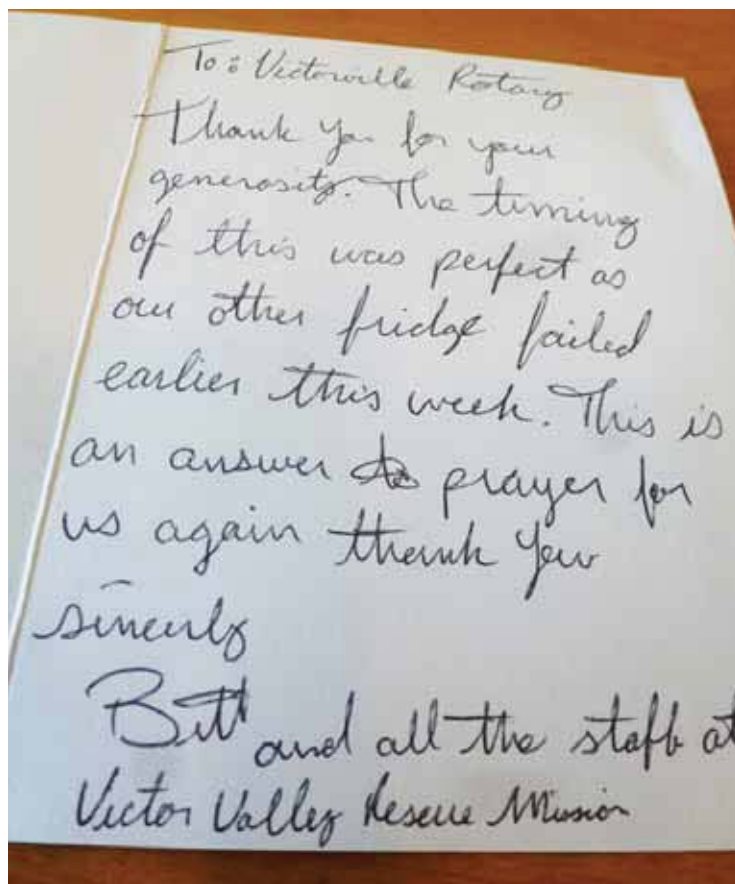 To: Victorville Rotary
Thank you for your
generosity. The timing
of this was perfect as
our other fridge failed
earlier this week. This is
an answer to prayer for
us again thank you
sincerly
and all the staff at
Victor Valley Rescue Mission